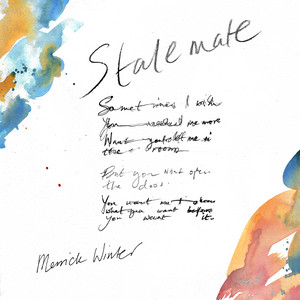 Stalemate
Sometimes I wish
You needed me more
Want you to let me in
the room
But you won't open
the door.
You want me to know
what you want before
You want it.
Merrick Winter